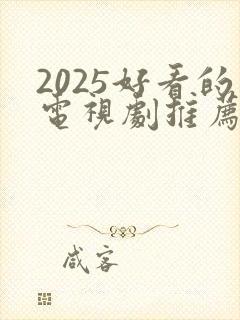 2025好看的
電視劇推薦
咸客